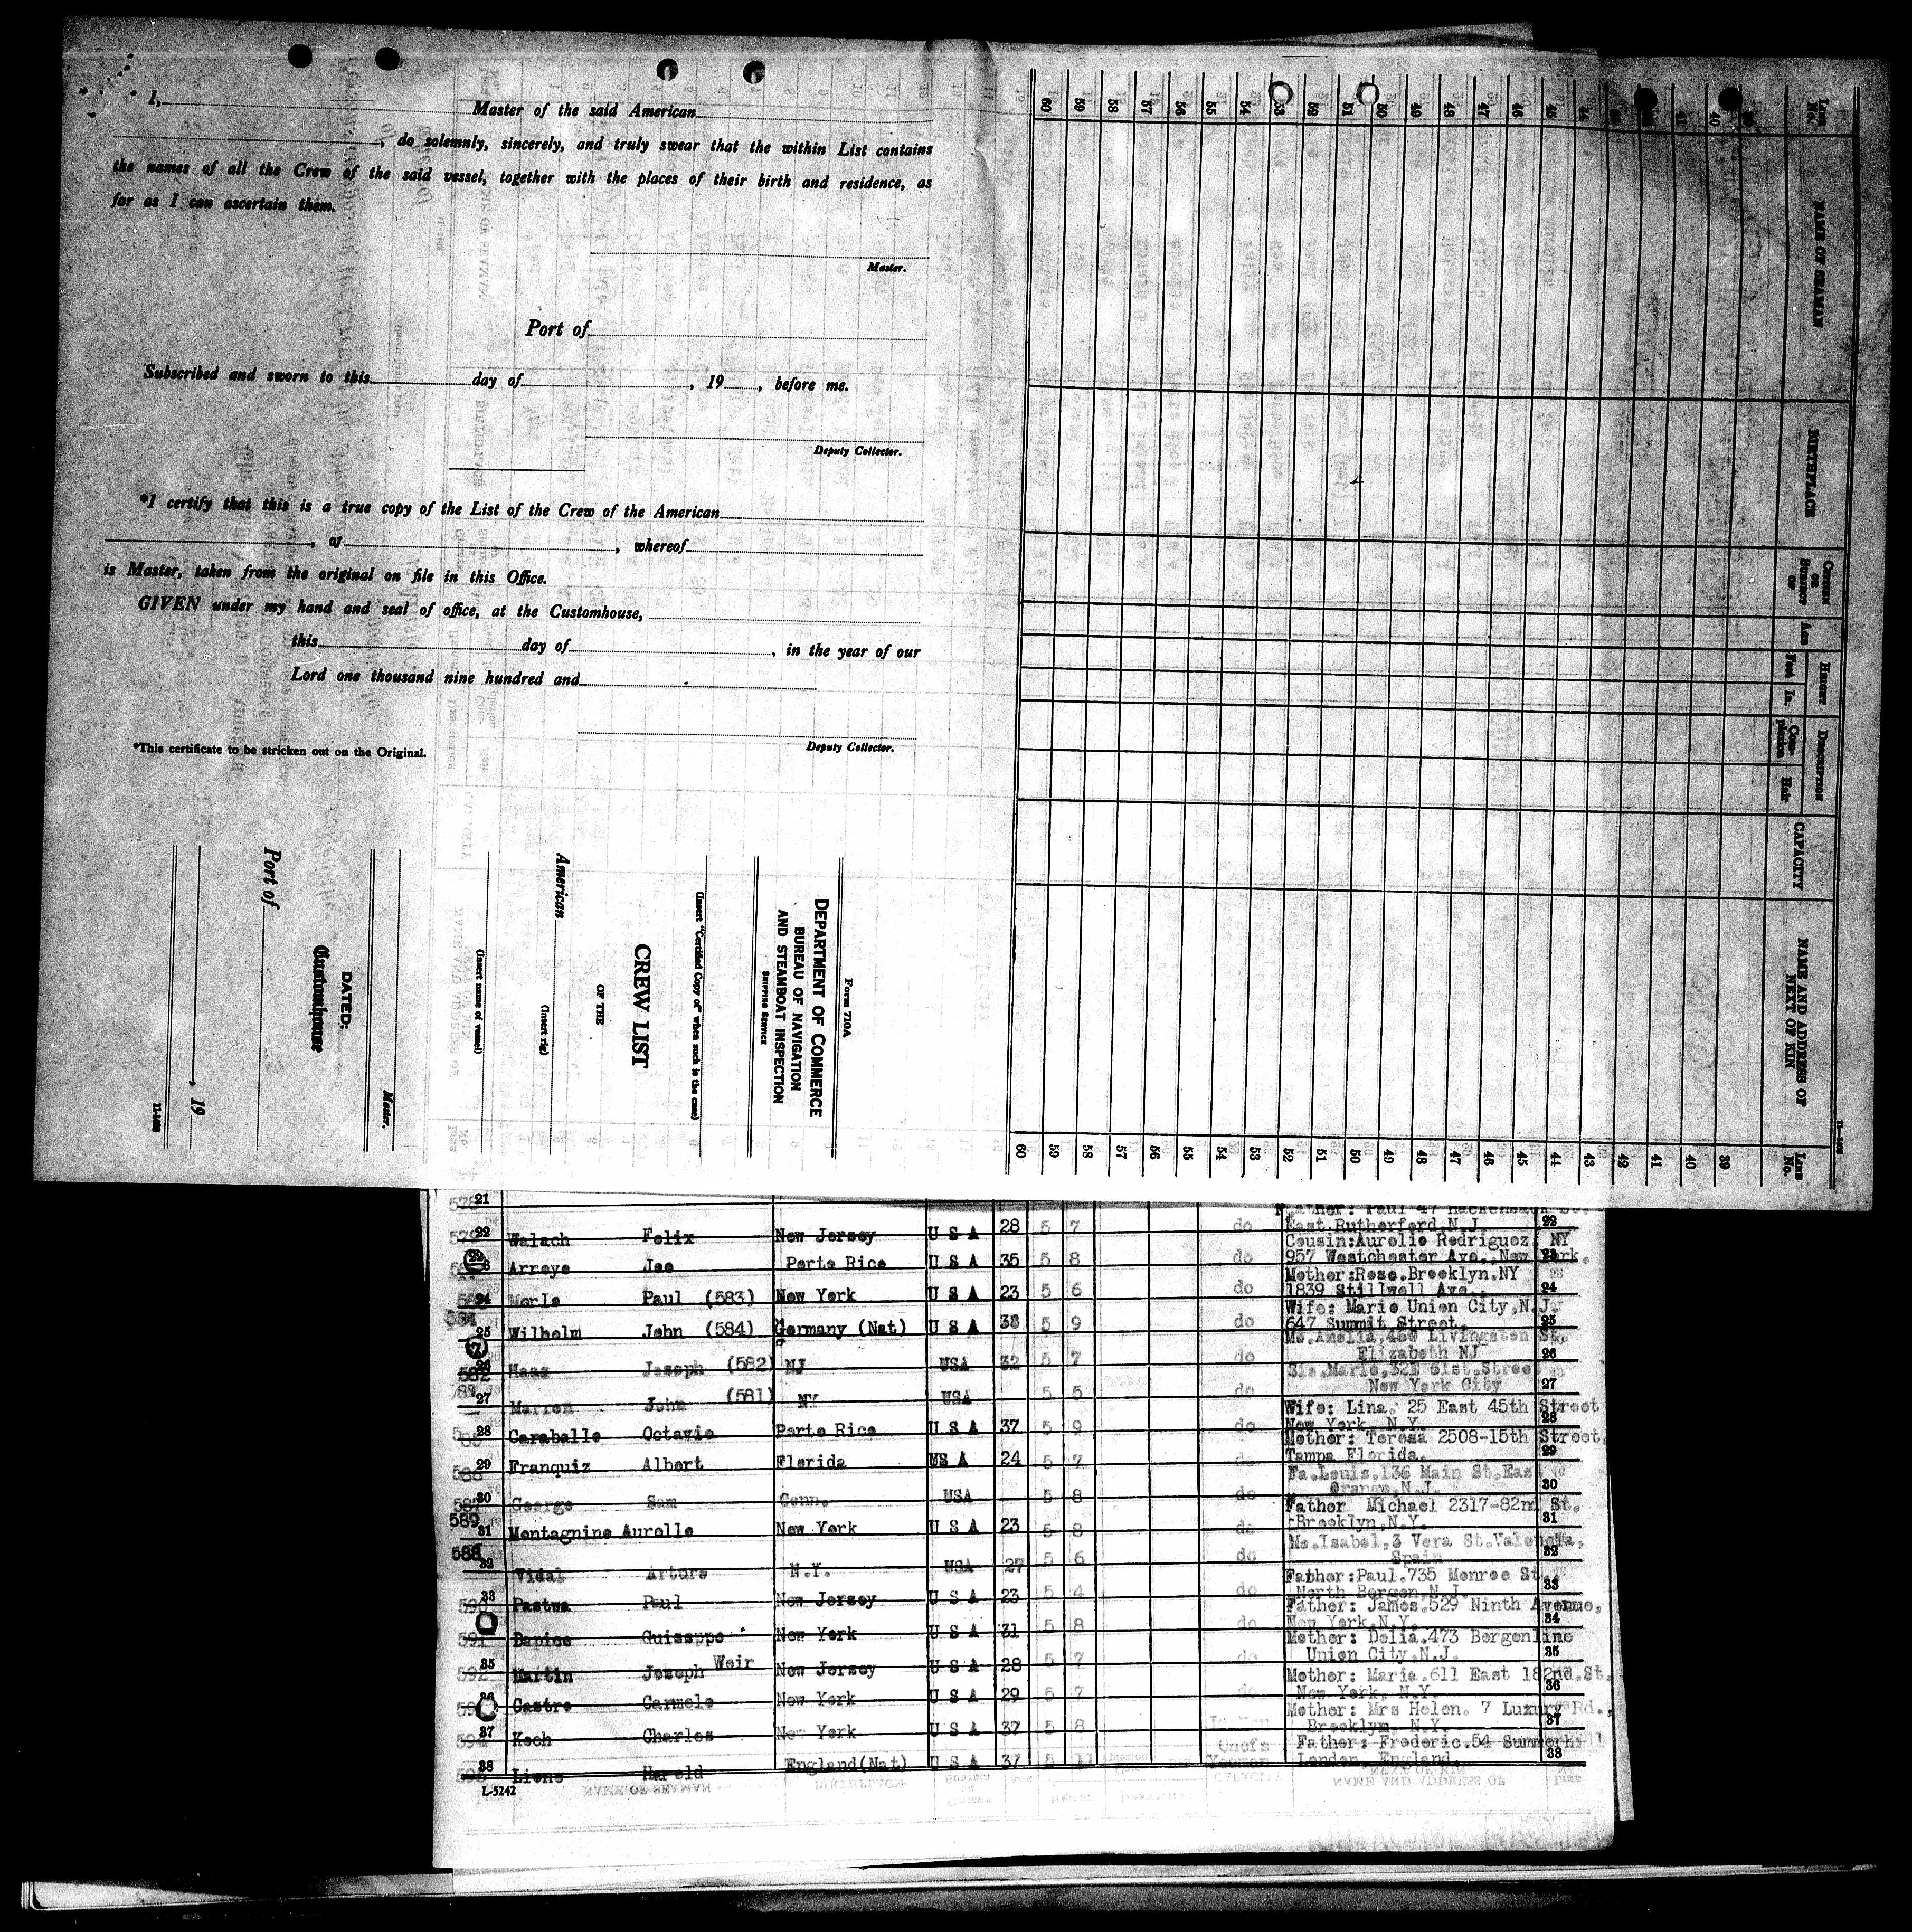 I, Master of the said American
, do solemnly, sincerely, and truly swear that the within List contains
the names of all the Crew of the said vessel, together with the places of their birth and residence, as
far as I can ascertain them.
Master.
Port of
Subscribed and sworn to this day of , 19 , before me.
Deputy Collector.
*I certify that this is a true copy of the List of the Crew of the American
, of , whereof
is Master, taken from the original on file in this Office.
GIVEN under my hand and seal of office, at the Customhouse,
this day of , in the year of our
Lord one thousand nine hundred and
Deputy Collector.
*This certificate to be stricken out on the Original.
Form 710A
DEPARTMENT OF COMMERCE
BUREAU OF NAVIGATION
AND STEAMBOAT INSPECTION
SHIPPING SERVICE
(Insert "Certified Copy of" when such is the case)
CREW LIST
OF THE
American
(Insert rig)
(Insert name of vessel)
Master.
DATED:
Customhouse
Port of
, 19
Line No. NAME OF SEAMAN BIRTHPLACE CITIZEN OR SUBJECT OF AGE HEIGHT Feet In. DESCRIPTION Complexion Hair CAPACITY NAME AND ADDRESS OF NEXT OF KIN Line No.
39
40
41
42
43
44
45
46
47
48
49
50
51
52
53
54
55
56
57
58
59
60
21
Father: Paul 47 Hackensack St.
22 Walach Felix New Jersey U S A 28 5 7 do East Rutherford N.J. 22
Cousin:Aurelio Rodriguez NY
Arroyo Joe Porto Rico U S A 35 5 8 do 957 Westchester Ave., New York. 23
Mother:Rose.Brooklyn.NY
24 Merle Paul (583) New York U S A 23 5 6 do 1839 Stillwell Ave., 24
Wife: Marie Union City,N.J.
25 Wilhelm John (584) Germany (Nat) U S A 38 5 9 do 647 Summit Street. 25
Mo.Amelia,460 Livingston St.
26 Haas Joseph (582) NJ USA 32 5 7 do Elizabeth NJ 26
Sis.Marie,32E 61st.Street
27 Marren John (581) NY USA 5 5 do New York City 27
Wife: Lina. 25 East 45th Street
28 Caraballo Octavio Porto Rico U S A 37 5 9 do New York, N.Y. 28
Mother: Teresa 2508-15th Street,
29 Franquiz Albert Florida US A 24 5 7 do Tampa Florida. 29
Fa.Louis,136 Main St.East
30 George Sam Conn. USA 5 8 do Orange,N.J. 30
Father Michael 2317-82nd St.
589 31 Montagnino Aurelio New York U S A 23 5 8 do Brooklyn,N.Y. 31
Mo.Isabel,3 Vera St.Valencia,
588 32 Vidal Arturo N.Y. USA 27 5 6 do Spain 32
Father:Paul.735 Monroe St.
590 33 Pastwa Paul New Jersey U S A 23 5 4 do North Bergen,N.J. 33
Father: James.529 Ninth Avenue,
591 Banice Guiseppe New York U S A 31 5 8 New York,N.Y. 34
Mother: Delia.473 Bergenline
592 35 Martin Joseph Weir New Jersey U S A 28 5 7 do Union City,N.J. 35
Mother: Maria.611 East 182nd.St.
36 Castro Carmelo New York U S A 29 5 7 do New York, N.Y. 36
Mother: Mrs Helen. 7 Luxury Rd.,
37 Koch Charles New York U S A 37 5 8 Brooklyn, N.Y. 37
Father: Frederic.54 Summerhill
38 Lions Harold England(Nat) U S A 37 5 11 Chef's Yeoman London, England. 38
L-5242